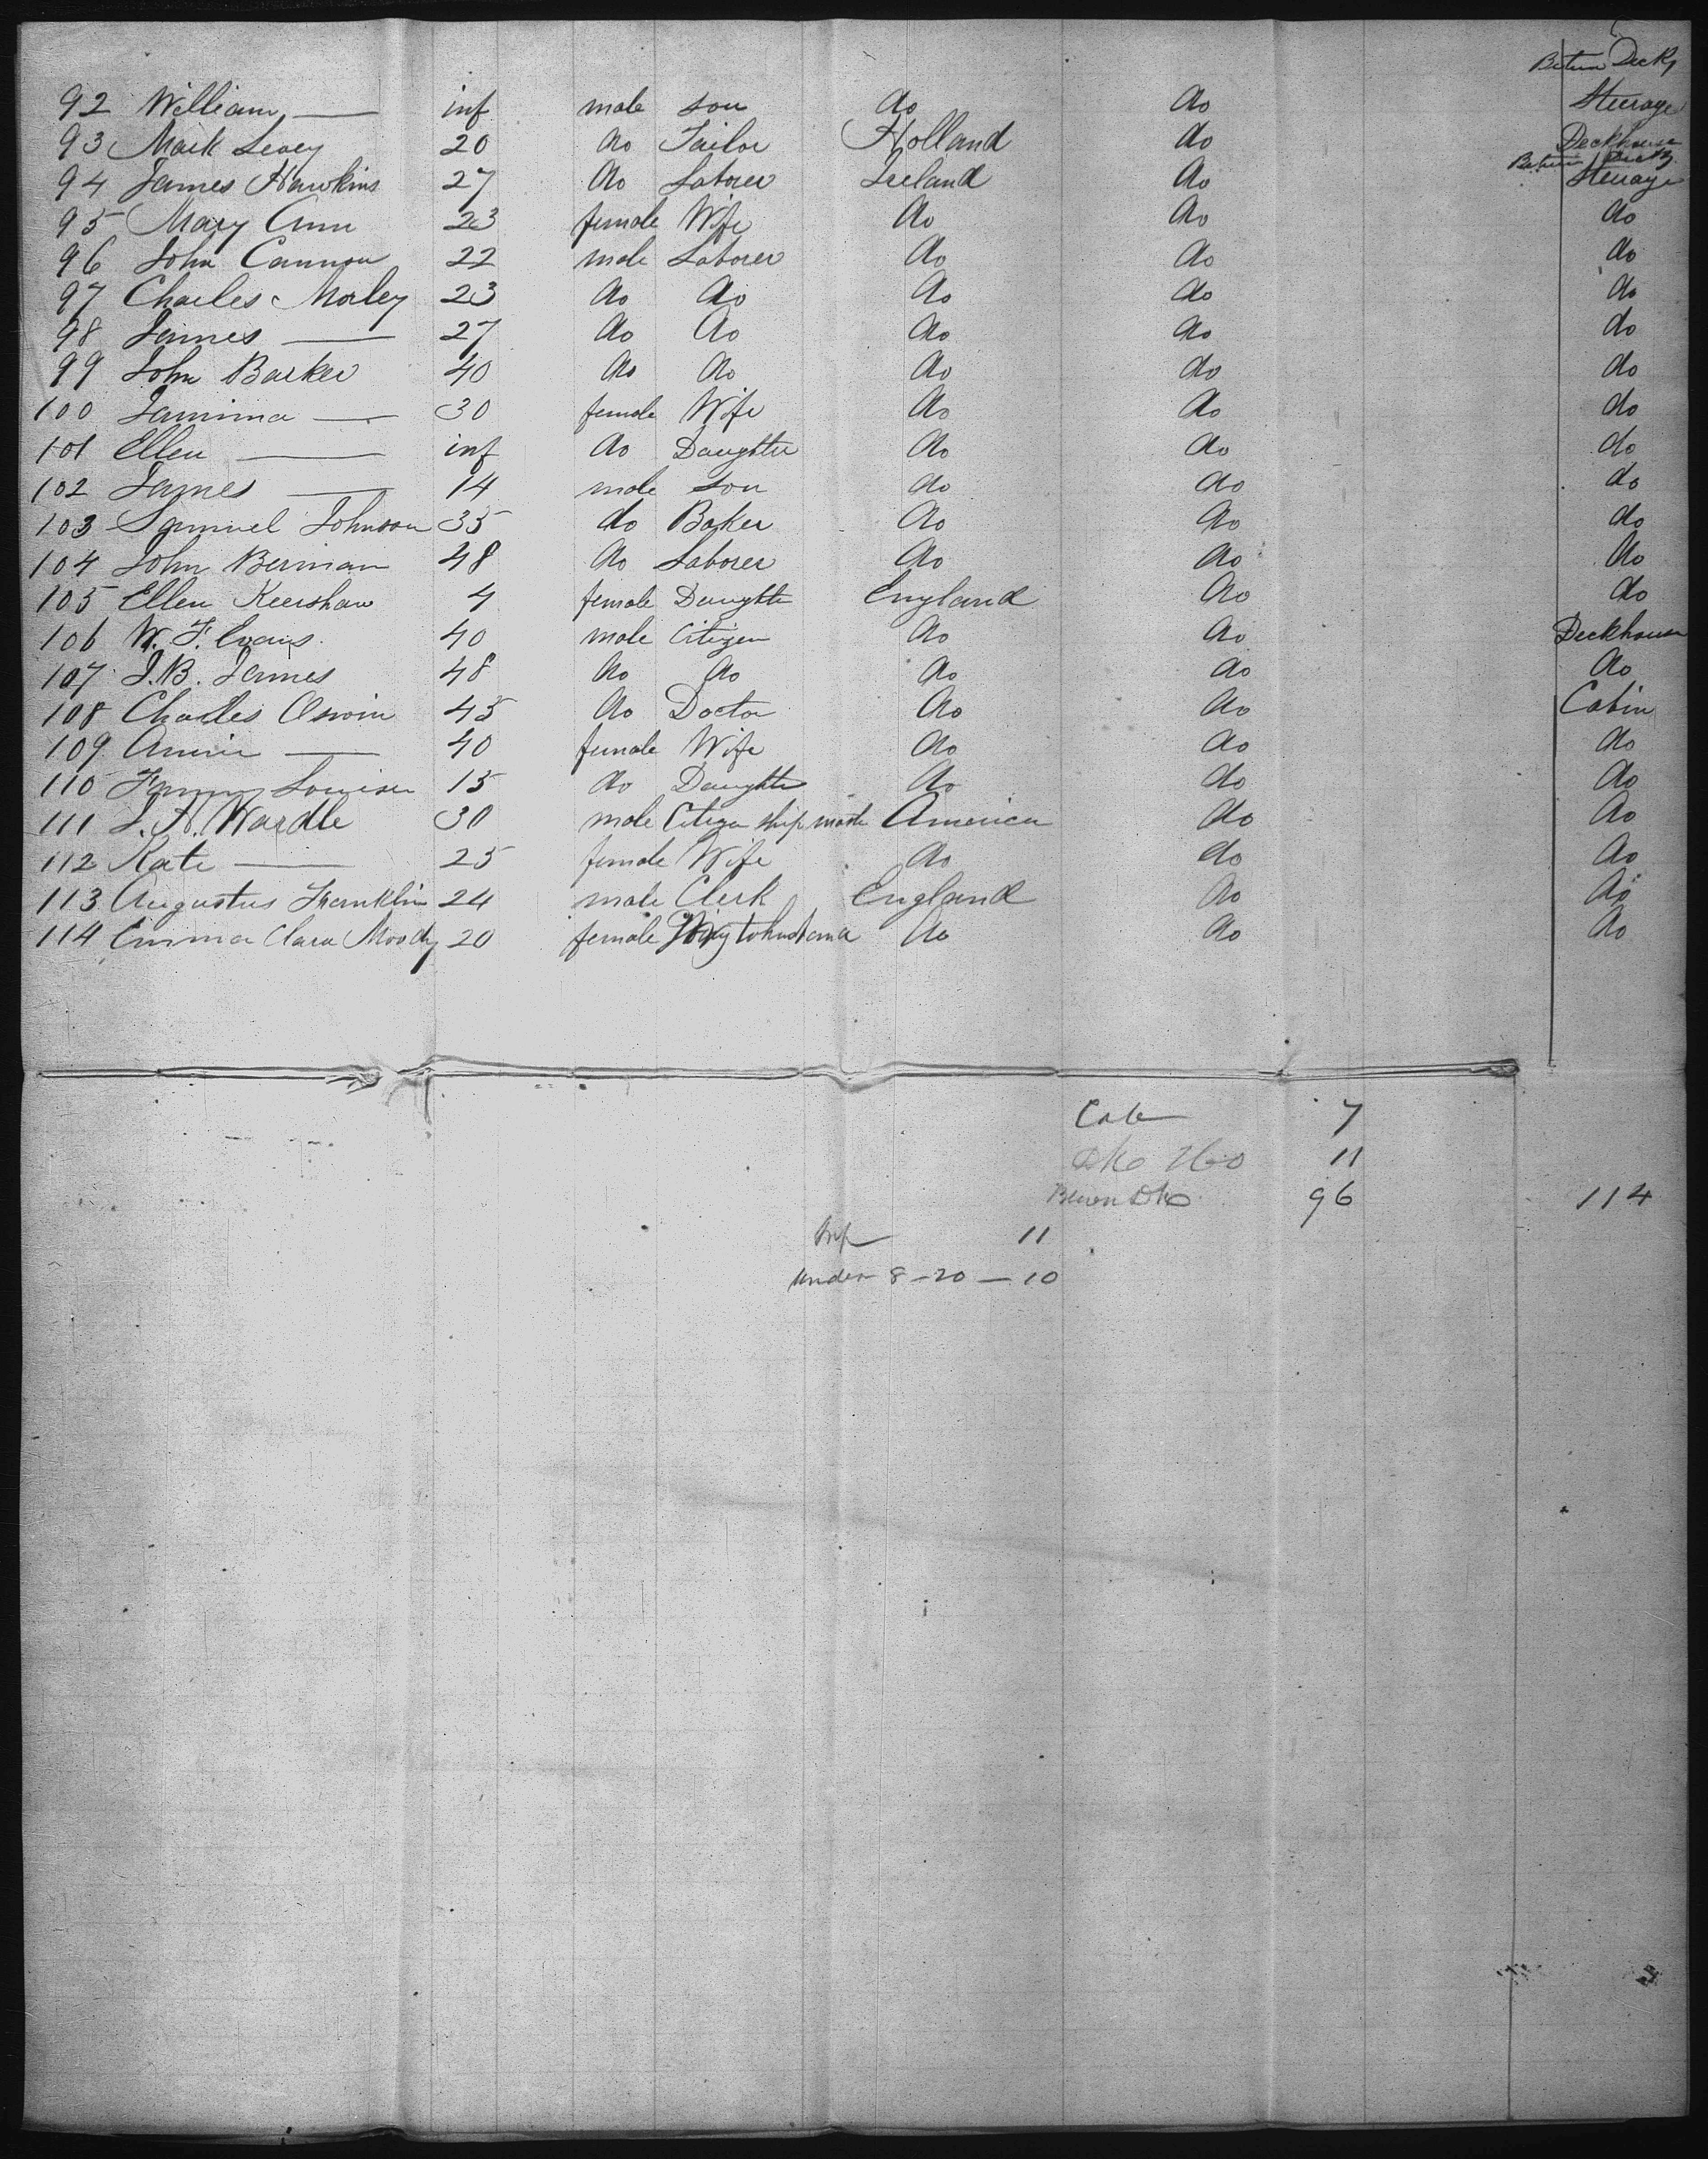 Between Decks
92 William — inf male son do do Steerage
93 Mark Levey 20 do Tailor Holland do Deckhouse
Between Decks
94 James Hawkins 27 do Laborer Ireland do Steerage
95 Mary Ann 23 female Wife do do do
96 John Cannon 22 male Laborer do do do
97 Charles Morley 23 do do do do do
98 James — 27 do do do do do
99 John Barker 40 do do do do do
100 Jamima — 30 female Wife do do do
101 Ellen — inf do Daughter do do do
102 James — 14 male son do do do
103 Samuel Johnson 35 do Baker do do do
104 John Berman 48 do Laborer do do do
105 Ellen Keershaw 4 female Daughter England do do
106 W. F. Evans. 40 male Citizen do do Deckhouse
107 J. B. James 48 do do do do do
108 Charles Oswin 45 do Doctor do do Cabin
109 Annie — 40 female Wife do do do
110 Louisa 15 do Daughter do do do
111 J. H. Wardle 30 male Citizen ship master America do do
112 Kate — 25 female Wife do do do
113 Augustus Franklin 24 male Clerk England do do
114 Emma Clara Moody 20 female to husband do do do
Cab 7
11
96 114
Inf 11
under 8 - 20 — 10